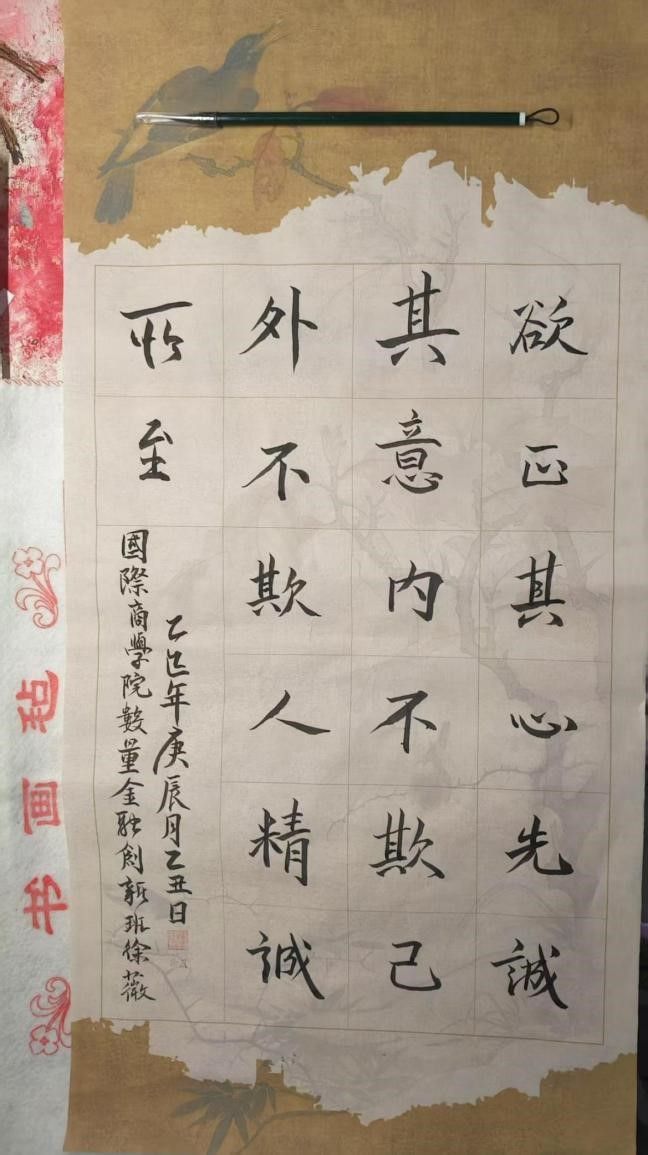 欲正其心先誠
其意内不欺己
外不欺人精誠
所至
乙巳年庚辰月乙丑日
國際商學院數量金融創新班徐薇
书画毡